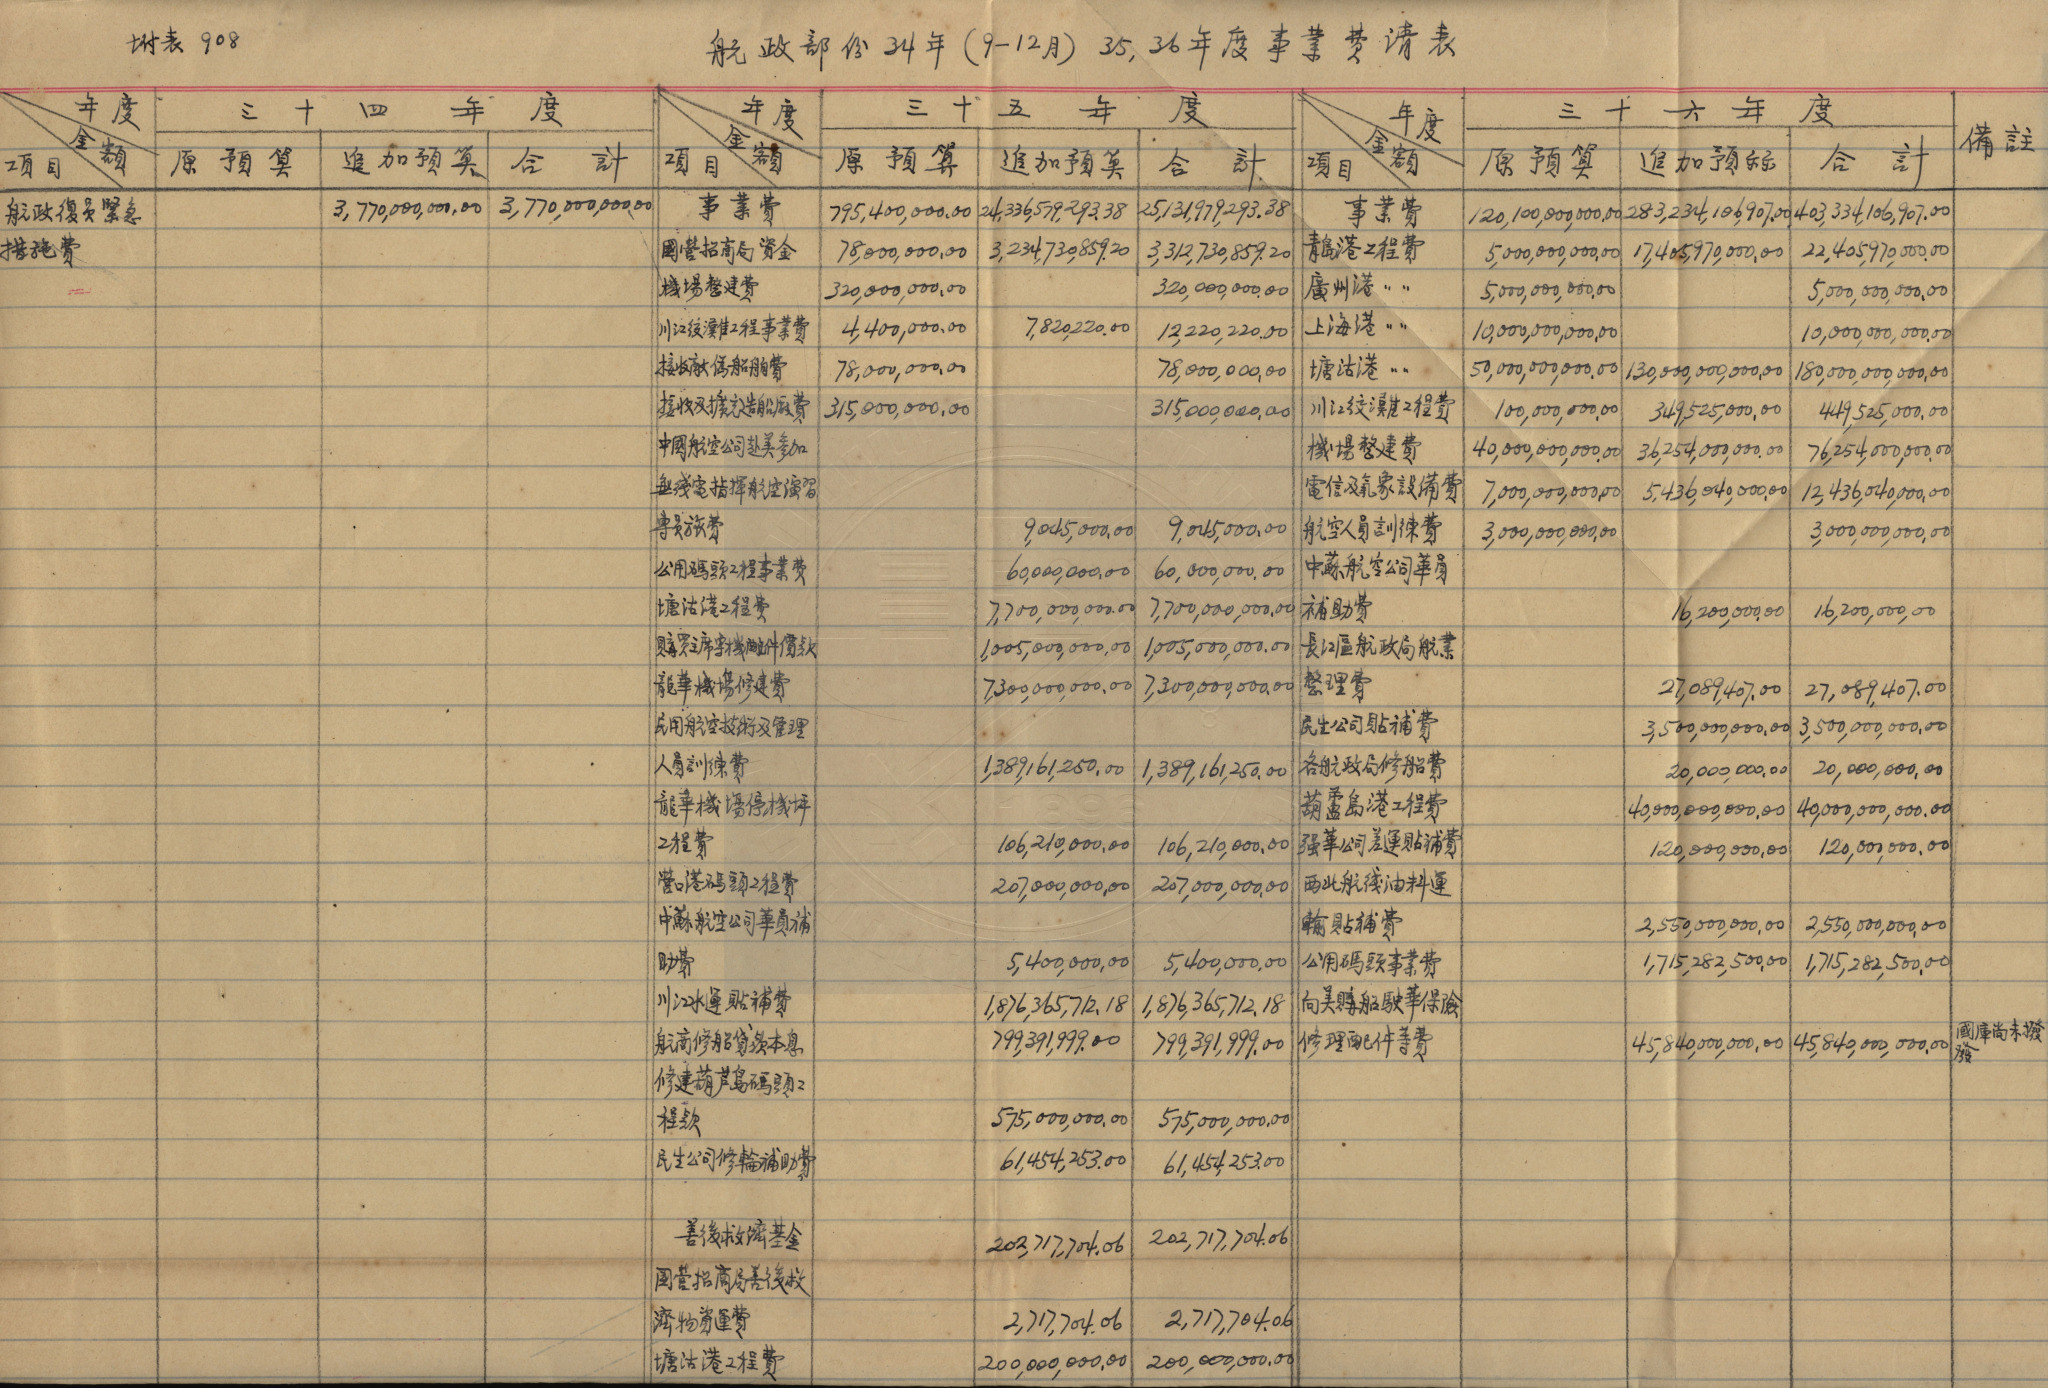 附表 908
航政部份34年(9-12月) 35,36年度事業費請表
年度 三十四年度 年度 三十五年度 年度 三十六年度 備註
金額 金額 金額
項目 原預算 追加預算 合計 項目 原預算 追加預算 合計 項目 原預算 追加預算 合計
航政復員緊急 3,770,000,000.00 3,770,000,000.00 事業費 795,400,000.00 24,336,579,293.38 25,131,979,293.38 事業費 120,100,000,000.00 283,234,106,907.00 403,334,106,907.00
措施費 國營招商局資金 78,000,000.00 3,234,730,859.20 3,312,730,859.20 青島港工程費 5,000,000,000.00 17,405,970,000.00 22,405,970,000.00
機場整建費 320,000,000.00 320,000,000.00 廣州港 〃 〃 5,000,000,000.00 5,000,000,000.00
川江絞灘工程事業費 4,400,000.00 7,820,220.00 12,220,220.00 上海港 〃 〃 10,000,000,000.00 10,000,000,000.00
接收敵偽船舶費 78,000,000.00 78,000,000.00 塘沽港 〃 〃 50,000,000,000.00 130,000,000,000.00 180,000,000,000.00
接收及擴充造船廠費 315,000,000.00 315,000,000.00 川江絞灘工程費 100,000,000.00 349,525,000.00 449,525,000.00
中國航空公司赴美參加 機場整建費 40,000,000,000.00 36,254,000,000.00 76,254,000,000.00
無綫電指揮航空演習 電信及氣象設備費 7,000,000,000.00 5,436,040,000.00 12,436,040,000.00
專員旅費 9,045,000.00 9,045,000.00 航空人員訓練費 3,000,000,000.00 3,000,000,000.00
公用碼頭工程事業費 60,000,000.00 60,000,000.00 中蘇航空公司華員
塘沽港工程費 7,700,000,000.00 7,700,000,000.00 補助費 16,200,000.00 16,200,000.00
購買主席專機配件價款 1,005,000,000.00 1,005,000,000.00 長江區航政局航業
龍華機場修建費 7,300,000,000.00 7,300,000,000.00 整理費 27,089,407.00 27,089,407.00
民用航空技術及管理 民生公司貼補費 3,500,000,000.00 3,500,000,000.00
人員訓練費 1,389,161,250.00 1,389,161,250.00 各航政局修船費 20,000,000.00 20,000,000.00
龍華機場停機坪 葫蘆島港工程費 40,000,000,000.00 40,000,000,000.00
工程費 106,210,000.00 106,210,000.00 强華公司差運貼補費 120,000,000.00 120,000,000.00
營口港碼頭工程費 207,000,000.00 207,000,000.00 西北航綫油料運
中蘇航空公司華員補 輸貼補費 2,550,000,000.00 2,550,000,000.00
助費 5,400,000.00 5,400,000.00 公用碼頭事業費 1,715,282,500.00 1,715,282,500.00
川江水運貼補費 1,876,365,712.18 1,876,365,712.18 向美購船駛華保險
航商修船貸款本息 799,391,999.00 799,391,999.00 修理配件等費 45,840,000,000.00 45,840,000,000.00 國庫尚未撥
發
修建葫芦島碼頭工
程款 575,000,000.00 575,000,000.00
民生公司修輪補助費 61,454,253.00 61,454,253.00
善後救濟基金 202,717,704.06 202,717,704.06
國營招商局善後救
濟物資運費 2,717,704.06 2,717,704.06
塘沽港工程費 200,000,000.00 200,000,000.00